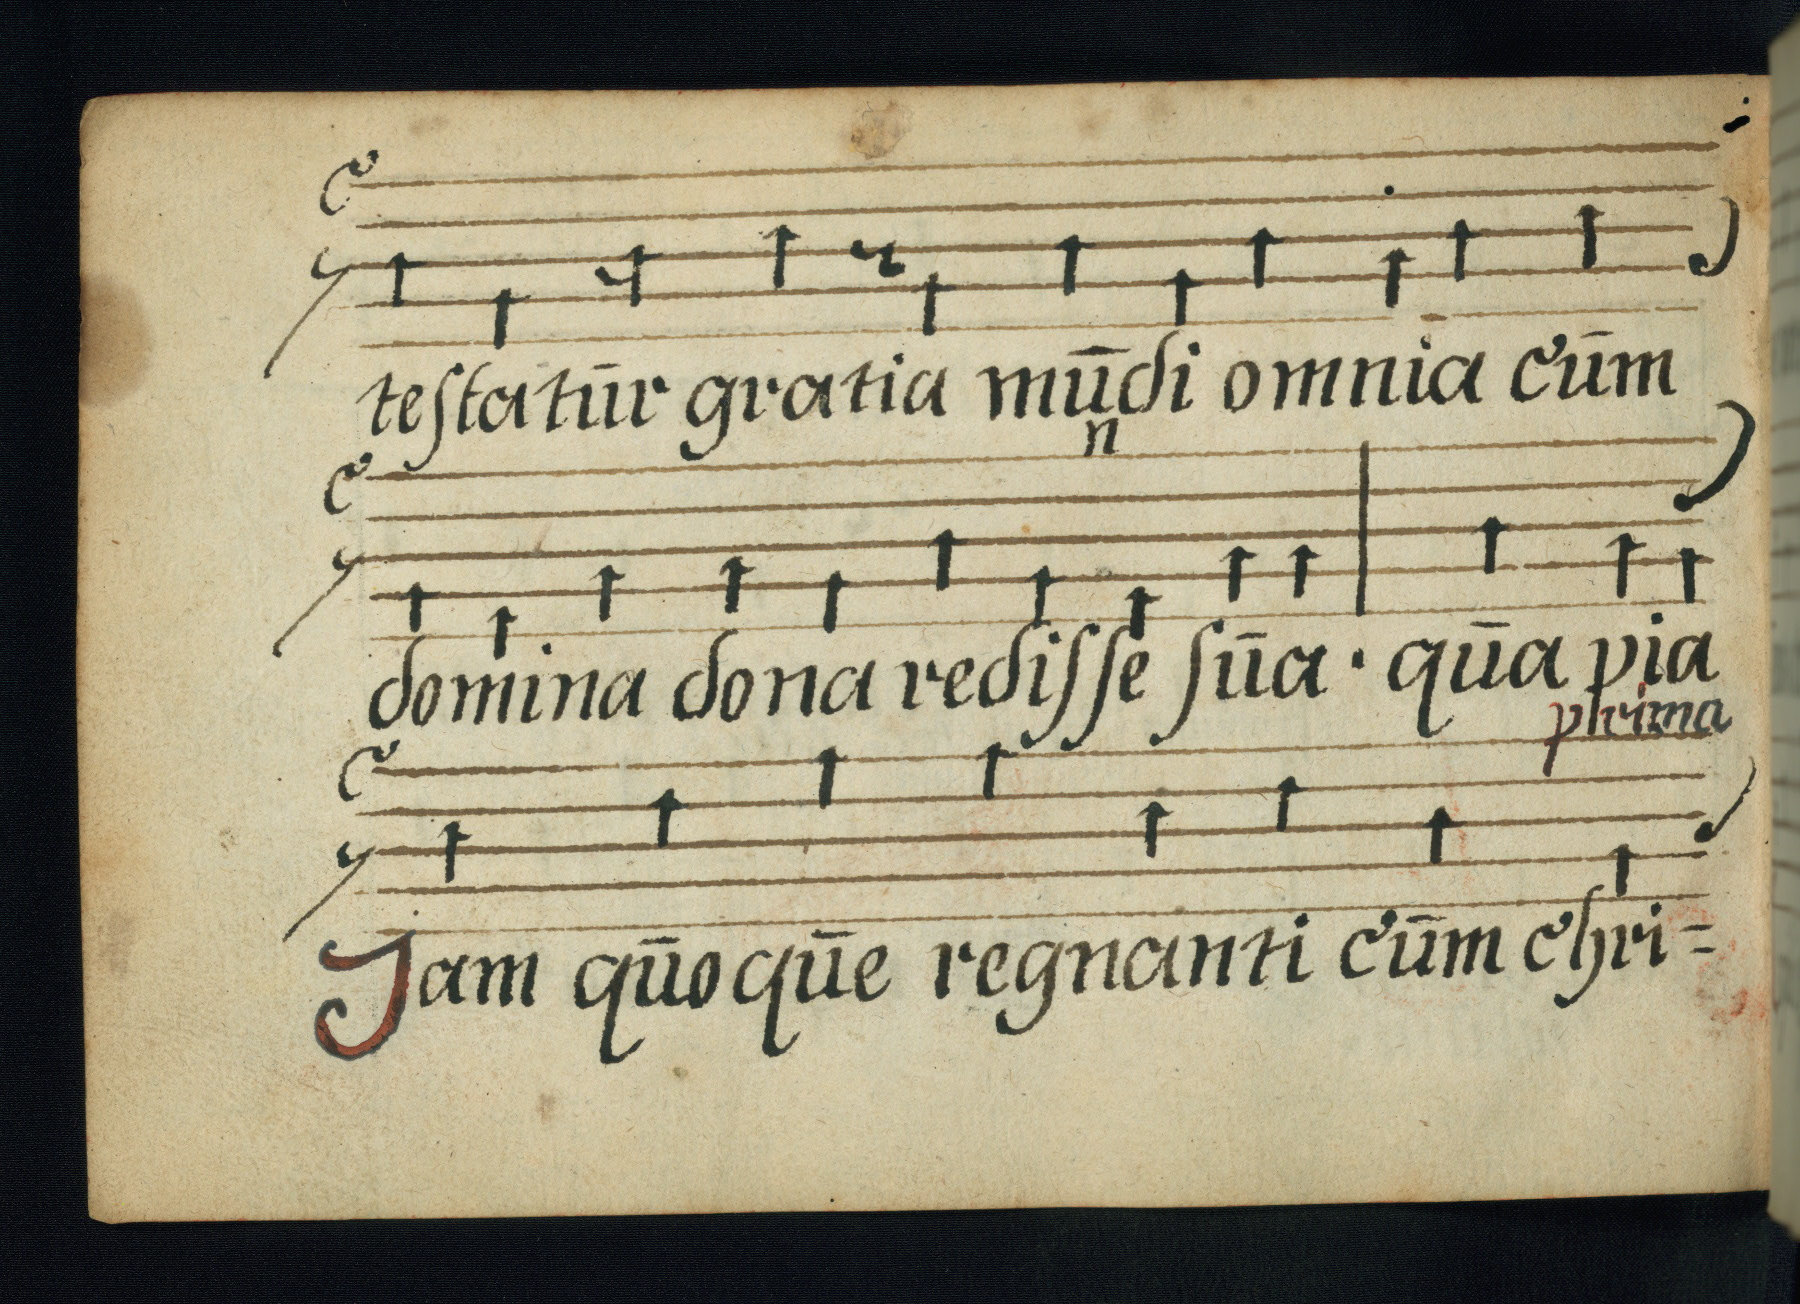 teſtatūr gratia mūdi omnia cūm
n
domina dona rediſſe ſūa · qūa pia
prima
Jam qūoqūe regnanti cūm chri=